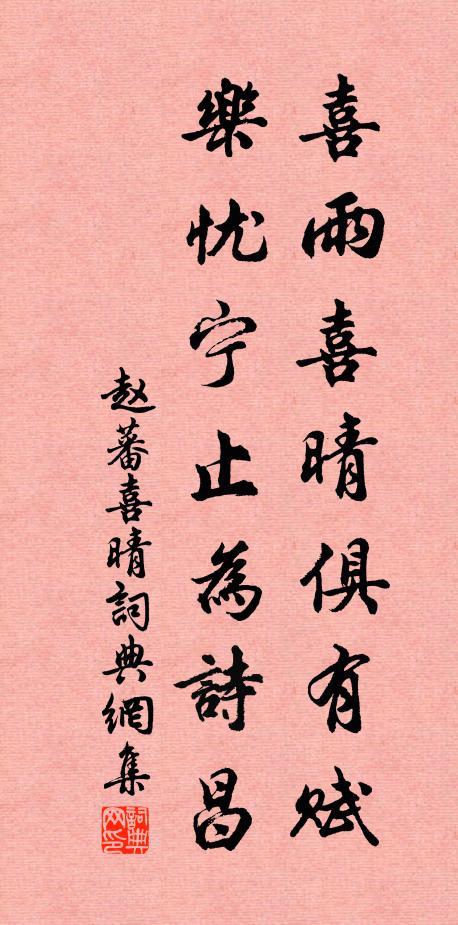 喜雨喜晴俱有赋
樂忧宁止為詩昌
赵蕃喜晴詞典網集
詞典网印